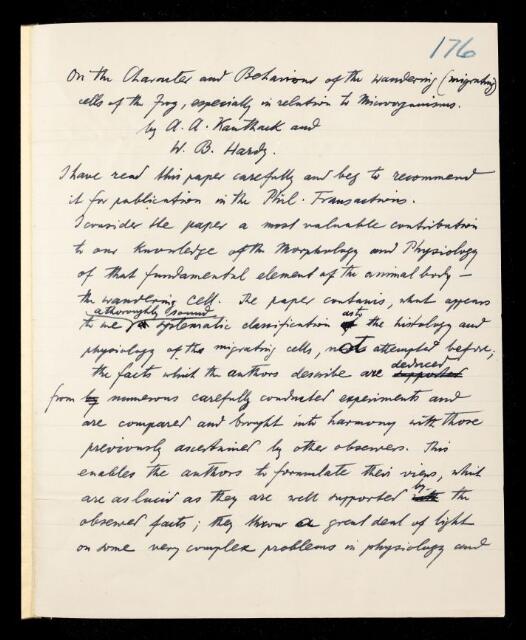 176
On the Character and Behaviour of the wandering (migrating)
cells of the frog, especially in relation to Microorganisms.
by A. A. Kanthack and
W. B. Hardy.
I have read this paper carefully and beg to recommend
it for publication in the Phil. Transactions.
I consider the paper a most valuable contribution
to our knowledge of the Morphology and Physiology
of that fundamental element of the animal body —
the wandering cell. The paper contains, what appears
a thoroughly sound
to me systematic classification as to the histology and
physiology of the migrating cells, not attempted before;
deduced
the facts which the authors describe are supported
from by numerous carefully conducted experiments and
are compared and brought into harmony with those
previously ascertained by other observers. This
enables the authors to formulate their views, which
by
are as lucid as they are well supported with the
observed facts; they throw a great deal of light
on some very complex problems in physiology and